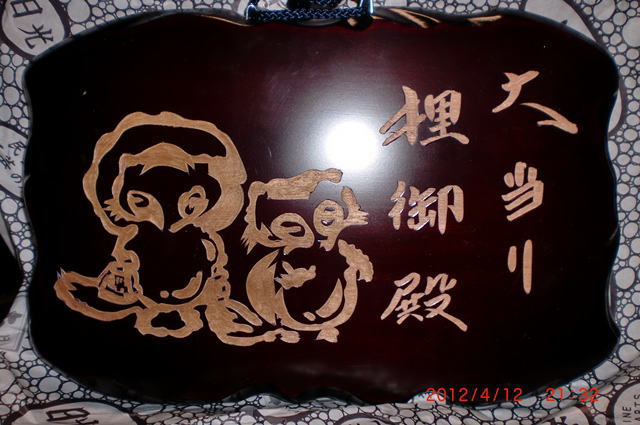 大当り
狸御殿
2012/4/12 21:32
日光